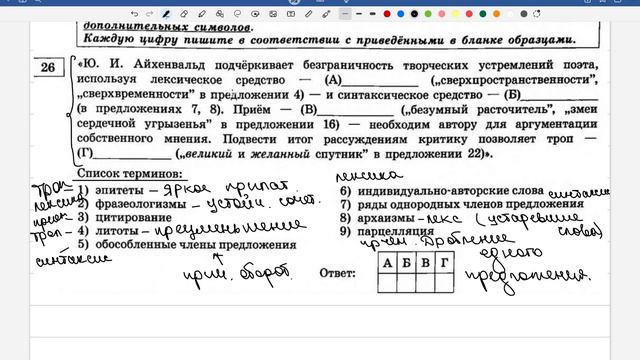 дополнительных символов.
Каждую цифру пишите в соответствии с приведёнными в бланке образцами.
26
«Ю. И. Айхенвальд подчёркивает безграничность творческих устремлений поэта,
используя лексическое средство — (А)__________ („сверхпространственности",
„сверхвременности" в предложении 4) — и синтаксическое средство — (Б)__________
(в предложениях 7, 8). Приём — (В)__________ („безумный расточитель", „змеи
сердечной угрызенья" в предложении 16) — необходим автору для аргументации
собственного мнения. Подвести итог рассуждениям критику позволяет троп —
(Г)__________ („великий и желанный спутник" в предложении 22)».
Список терминов:
троп 1) эпитеты – яркое прилаг.
лексика 2) фразеологизмы – устойч. сочет.
приём 3) цитирование
троп – 4) литоты – преуменьшение
5) обособленные члены предложения
синтаксис
прич. оборот.
лексика
6) индивидуально-авторские слова
7) ряды однородных членов предложения синтаксис
8) архаизмы – лекс (устаревшие слова)
9) парцелляция
приём. Дробление одного
предложения.
Ответ:
А Б В Г